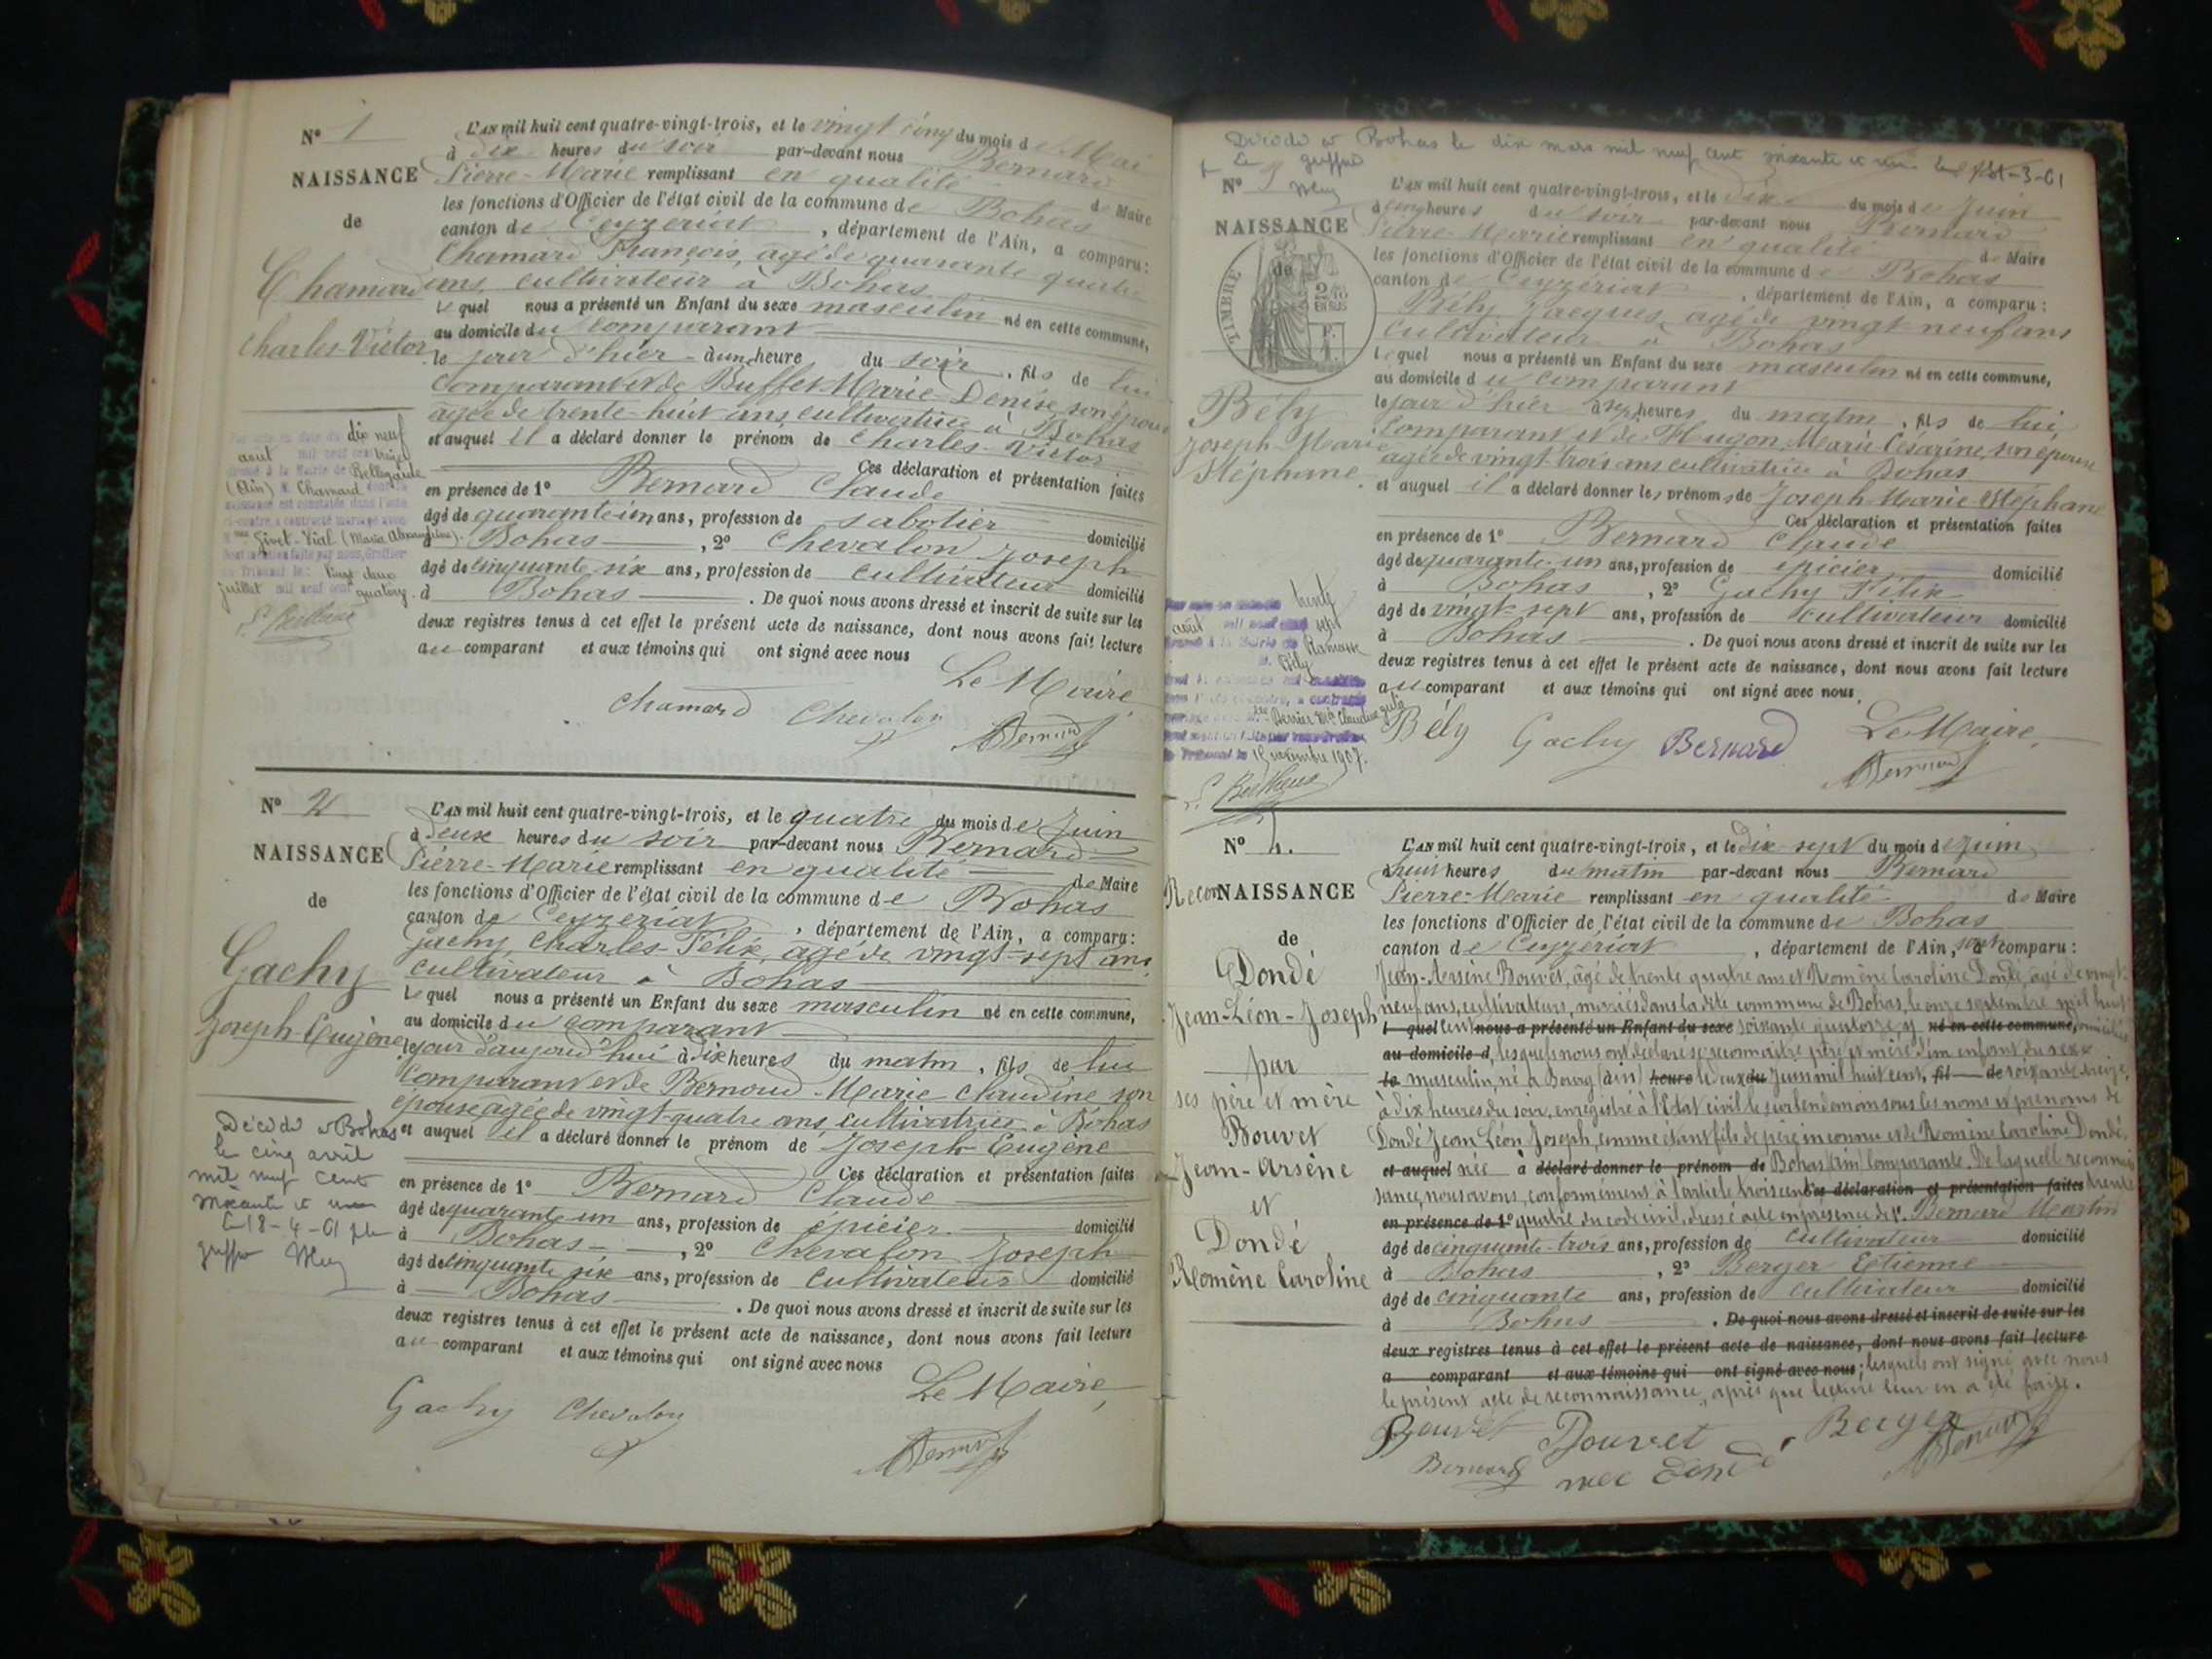 N° 1
NAISSANCE
de
Chamard
Charles-Victor
L'AN mil huit cent quatre-vingt-trois, et le vingt cinq du mois de Mai
à dix heures du soir par-devant nous Bernard
Pierre-Marie remplissant en qualité de Maire
les fonctions d'Officier de l'état civil de la commune de Bohas
canton de Ceyzeriat, département de l'Ain, a comparu:
Chamard François, agé de quarante quatre
ans, cultivateur à Bohas
Lequel nous a présenté un Enfant du sexe masculin né en cette commune,
au domicile du comparant
le jour d'hier à une heure du soir, fils de lui
comparant et de Buffet Marie Denise, son épouse
agée de trente-huit ans, cultivatrice à Bohas
et auquel il a déclaré donner le prénom de Charles-Victor
Ces déclaration et présentation faites
en présence de 1° Bernard Claude
âgé de quarante un ans, profession de sabotier domicilié
à Bohas, 2° Chevalon Joseph
âgé de cinquante six ans, profession de cultivateur domicilié
à Bohas. De quoi nous avons dressé et inscrit de suite sur les
deux registres tenus à cet effet le présent acte de naissance, dont nous avons fait lecture
au comparant et aux témoins qui ont signé avec nous
Le Maire
Chamard Chevalon Bernard
dix neuf
août mil neuf cent treize
à la Mairie de Bellegarde
(Ain) M. Chamard
Givet-Vial (Maria Alexandrine).
Vingt deux
juillet mil neuf cent quatorze.
N° 2
NAISSANCE
de
Gachy
Joseph-Eugène
L'AN mil huit cent quatre-vingt-trois, et le quatre du mois de Juin
à deux heures du soir par-devant nous Bernard
Pierre-Marie remplissant en qualité de Maire
les fonctions d'Officier de l'état civil de la commune de Bohas
canton de Ceyzeriat, département de l'Ain, a comparu:
Gachy, Charles-Félix, agé de vingt-sept ans,
cultivateur à Bohas
Lequel nous a présenté un Enfant du sexe masculin né en cette commune,
au domicile du comparant
le jour d'aujourd'hui à dix heures du matin, fils de lui
comparant et de Bernoud Marie Claudine son
épouse agée de vingt-quatre ans, cultivatrice à Bohas
et auquel il a déclaré donner le prénom de Joseph-Eugène
Ces déclaration et présentation faites
en présence de 1° Bernard Claude
âgé de quarante un ans, profession de épicier domicilié
à Bohas, 2° Chevalon Joseph
âgé de cinquante six ans, profession de cultivateur domicilié
à Bohas. De quoi nous avons dressé et inscrit de suite sur les
deux registres tenus à cet effet le présent acte de naissance, dont nous avons fait lecture
au comparant et aux témoins qui ont signé avec nous
Le Maire,
Gachy Chevalon Bernard
Décédé à Bohas
le cinq avril
mil neuf cent
soixante et un
Le 18-4-61
Décédé à Bohas le dix mars mil neuf cent soixante et un
Le greffier
N° 3
NAISSANCE
de
TIMBRE
Bély
Joseph-Marie
Stéphane.
L'AN mil huit cent quatre-vingt-trois, et le dix du mois de Juin
à cinq heures du soir par-devant nous Bernard
Pierre-Marie remplissant en qualité de Maire
les fonctions d'Officier de l'état civil de la commune de Bohas
canton de Ceyzeriat, département de l'Ain, a comparu:
Bély Jacques agé de vingt-neuf ans
cultivateur à Bohas
Lequel nous a présenté un Enfant du sexe masculin né en cette commune,
au domicile du comparant
le jour d'hier à heures du matin, fils de lui
comparant et de Hugon Marie Césarine, son épouse
agée de vingt-trois ans cultivatrice à Bohas
et auquel il a déclaré donner les prénoms de Joseph-Marie-Stéphane
Ces déclaration et présentation faites
en présence de 1° Bernard Claude
âgé de quarante-un ans, profession de épicier domicilié
à Bohas, 2° Gachy Félix
âgé de vingt sept ans, profession de cultivateur domicilié
à Bohas. De quoi nous avons dressé et inscrit de suite sur les
deux registres tenus à cet effet le présent acte de naissance, dont nous avons fait lecture
au comparant et aux témoins qui ont signé avec nous.
Bély Gachy Bernard Le Maire,
Bernard
trente
août mil neuf cent sept
à la Mairie de Ramasse
M. Bély
15 novembre 1907.
N° 4.
ReconNAISSANCE
de
Dondé
Jean-Léon-Joseph
par
ses père et mère
Bouvet
Jean-Arsène
et
Dondé
Romène Caroline
L'AN mil huit cent quatre-vingt-trois, et le dix-sept du mois de Juin
à huit heures du matin par-devant nous Bernard
Pierre-Marie remplissant en qualité de Maire
les fonctions d'Officier de l'état civil de la commune de Bohas
canton de Ceyzeriat, département de l'Ain, sont comparu:
Jean-Arsène Bouvet, âgé de trente quatre ans et Romène Caroline Dondé, âgé de vingt-
neuf ans, cultivateurs, mariés dans la dite commune de Bohas, le onze septembre mil huit
l quel cent nous a présenté un Enfant du sexe soixante quatorze, y né en cette commune, domiciliés
au domicile d, lesquels nous ont déclaré se reconnaître père et mère d'un enfant du sexe
le masculin, né à Bourg (Ain) heure le deux du Juin mil huit cent, fil de soixante-treize,
à dix heures du soir, enregistré à l'Etat civil le surlendemain sous les noms et prénoms de
Dondé Jean Léon Joseph, comme étant fils de père inconnu et de Romène Caroline Dondé,
et auquel née à déclaré donner le prénom de Bohas (Ain) comparante. De laquelle reconnais-
sance, nous avons, conformément à l'article trois cent Ces déclaration et présentation faites trente
en présence de 1° quatre du code civil, dressé acte en présence de 1°. Bernard Martin
âgé de cinquante-trois ans, profession de cultivateur domicilié
à Bohas, 2° Berger Etienne
âgé de cinquante ans, profession de cultivateur domicilié
à Bohas. De quoi nous avons dressé et inscrit de suite sur les
deux registres tenus à cet effet le présent acte de naissance, dont nous avons fait lecture
a comparant et aux témoins qui ont signé avec nous; lesquels ont signé avec nous
le présent acte de reconnaissance, après que lecture leur en a été faite.
Bouvet Bouvet Berger Bernard
Bernard née Dondé